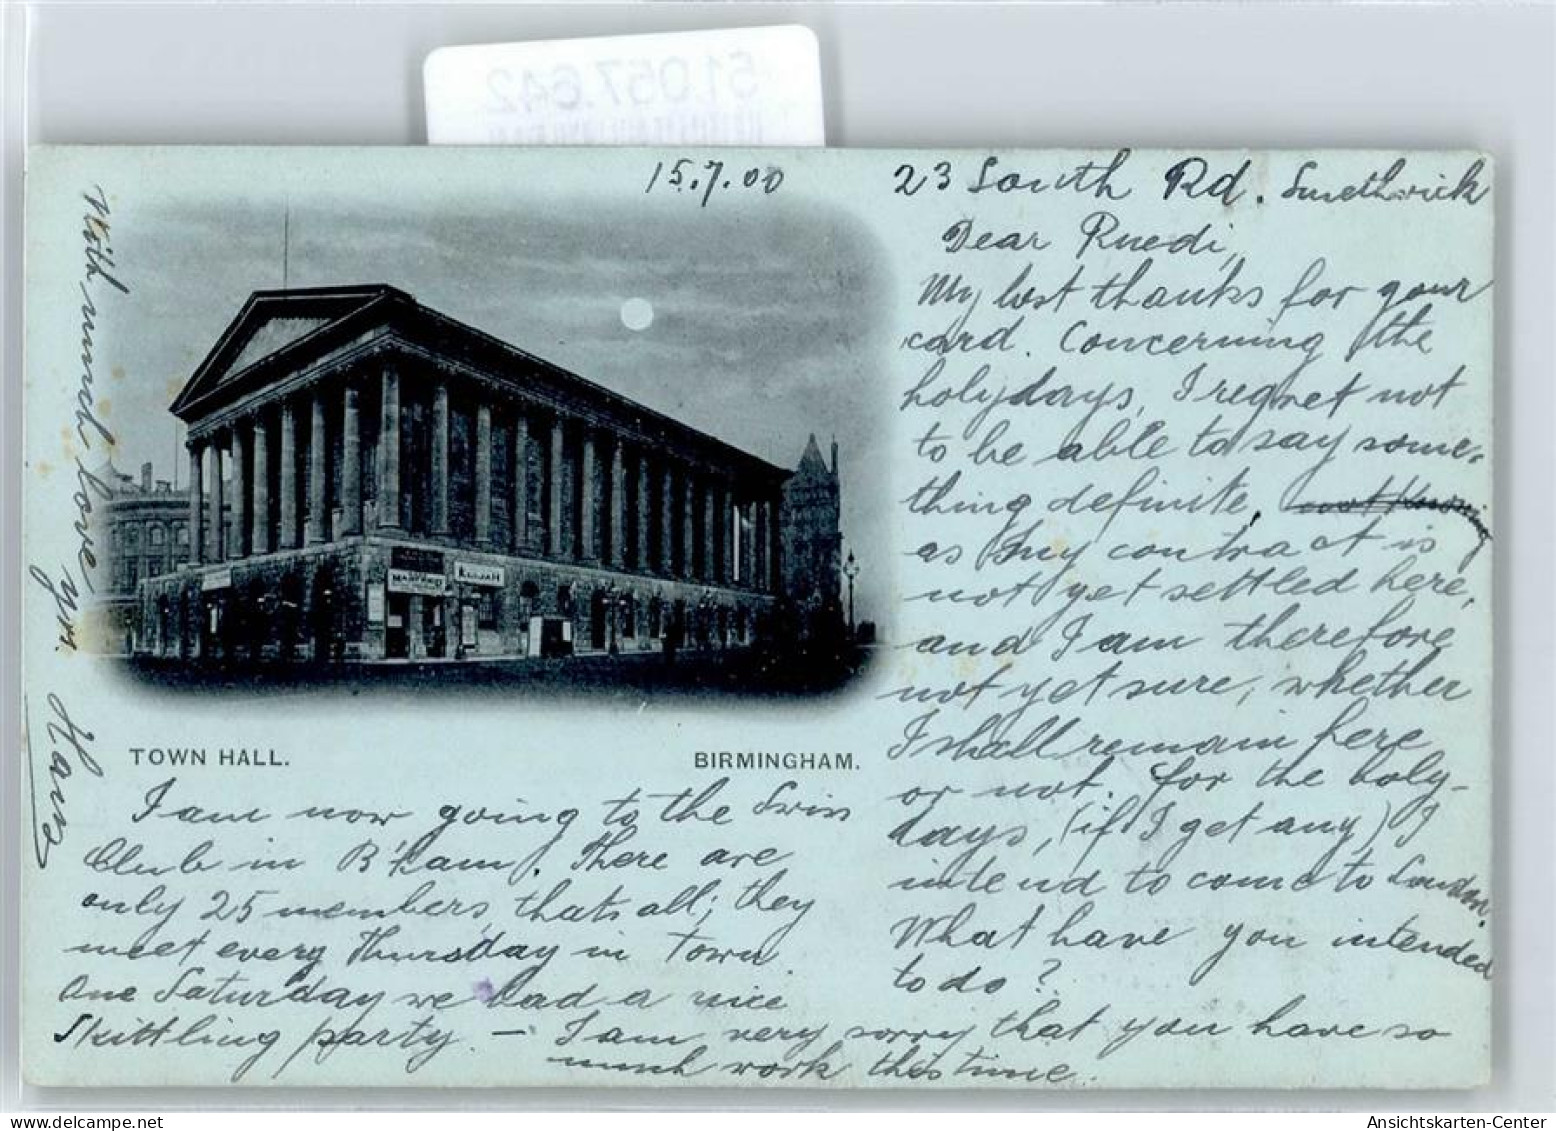 51.057.642
15.7.00
23 South Rd. Smethwick
Dear Ruedi,
My best thanks for your
card. Concerning the
holydays, I regret not
to be able to say some-
thing definite, not knowing
as my contract is
not yet settled here,
and I am therefore
not yet sure, whether
I shall remain here
or not. For the holy-
days, (if I get any) I
intend to come to London.
What have you intended
to do?
TOWN HALL. BIRMINGHAM.
ELIJAH
I am now going to the Swiss
Club in B'ham. There are
only 25 members, thats all; they
meet every Thursday in Town.
One Saturday we had a nice
Skittling party. — I am very sorry that you have so
much work this time.
With much love
yrs.
Hans
delcampe.net
Ansichtskarten-Center